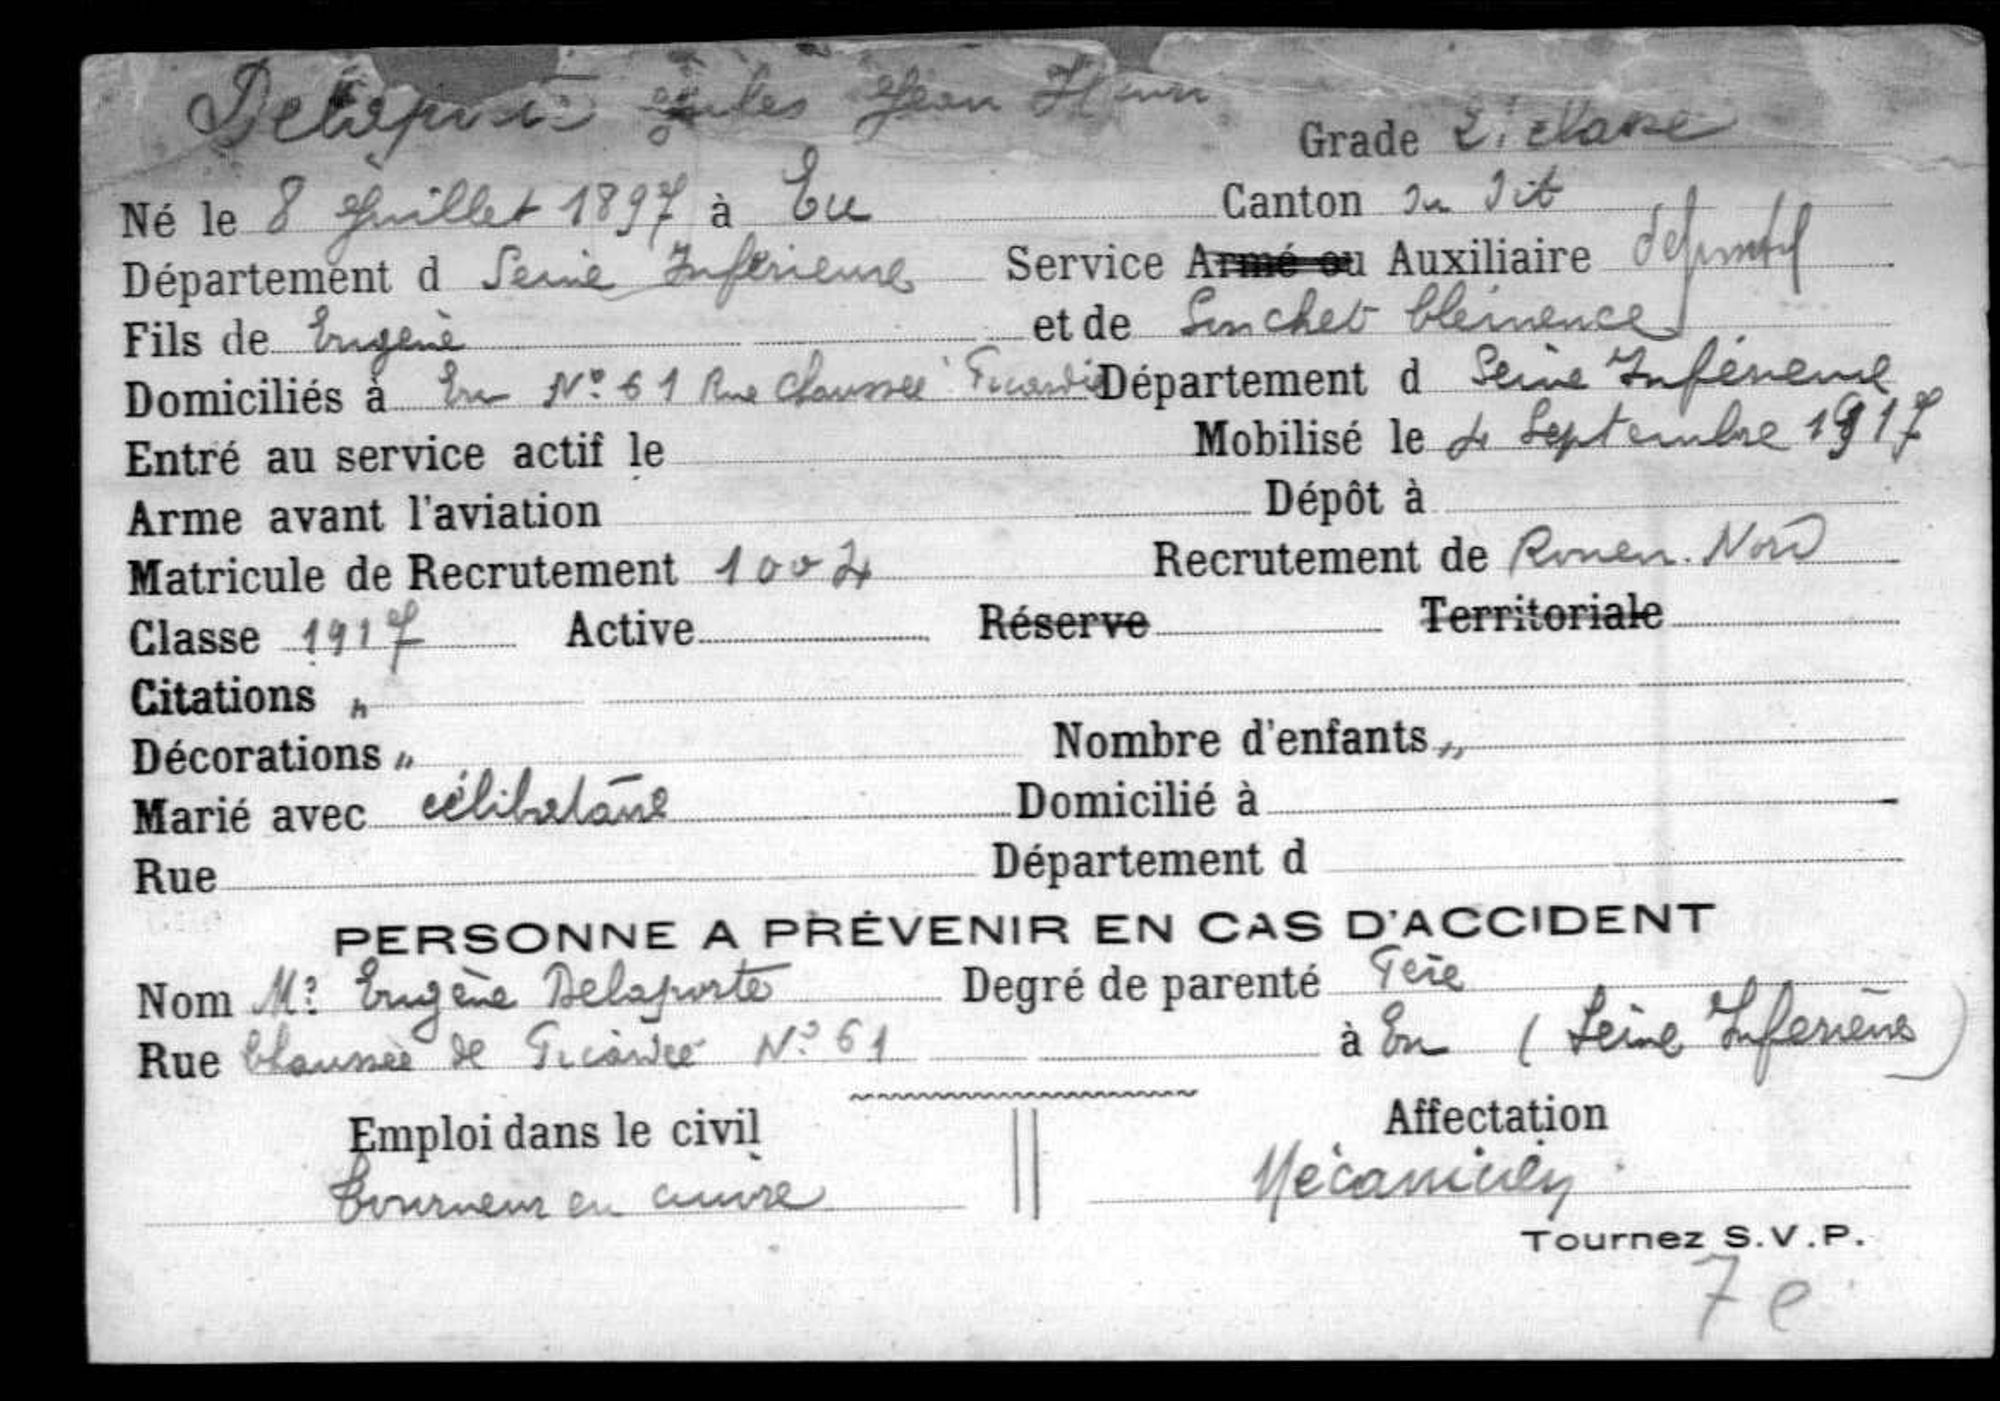 Delaporte Jules Jean Henri
Grade 2e classe
Né le 8 Juillet 1897 à Eu Canton du dit
Département d Seine Inférieure Service Armé ou Auxiliaire définitif
Fils de Eugène et de Clémence
Domiciliés à Eu N° 61 Rue Chaussée Picardie Département d Seine Inférieure
Entré au service actif le Mobilisé le 4 Septembre 1917
Arme avant l'aviation Dépôt à
Matricule de Recrutement 1004 Recrutement de Rouen. Nord
Classe 1917 Active Réserve Territoriale
Citations "
Décorations " Nombre d'enfants "
Marié avec célibataire Domicilié à
Rue Département d
PERSONNE A PRÉVENIR EN CAS D'ACCIDENT
Nom Mr Eugène Delaporte Degré de parenté Père
Rue Chaussée de Picardie N° 61 à Eu (Seine Inférieure)
Emploi dans le civil Affectation
tourneur en cuivre Mécanicien
Tournez S.V.P.
7e